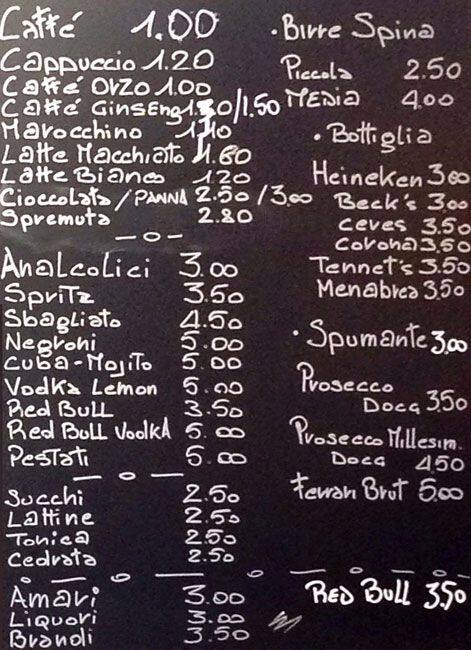 Caffé 1.00
Cappuccio 1.20
Caffé Orzo 1.00
Caffé Ginseng /1.50
Marocchino 1.10
Latte Macchiato 1.60
Latte Bianco 1.20
Cioccolata/PANNA 2.50/3.00
Spremuta 2.80
Analcolici 3.00
Spritz 3.50
Sbagliato 4.50
Negroni 5.00
Cuba-Mojito 5.00
Vodka Lemon 5.00
Red Bull 3.50
Red Bull Vodka 5.00
Pestati 5.00
Succhi 2.50
Lattine 2.50
Tonica 2.50
Cedrata 2.50
Amari 3.00
Liquori 3.00
Brandi 3.50
• Birre Spina
Piccola 2.50
Media 4.00
• Bottiglia
Heineken 3.00
Beck's 3.00
Ceves 3.50
Corona 3,50
Tennet's 3.50
Menabrea 3,50
• Spumante 3,00
Prosecco
Docg 3,50
Prosecco Millesim.
Docg 4.50
Ferrari Brut 5,00
Red Bull 3,50